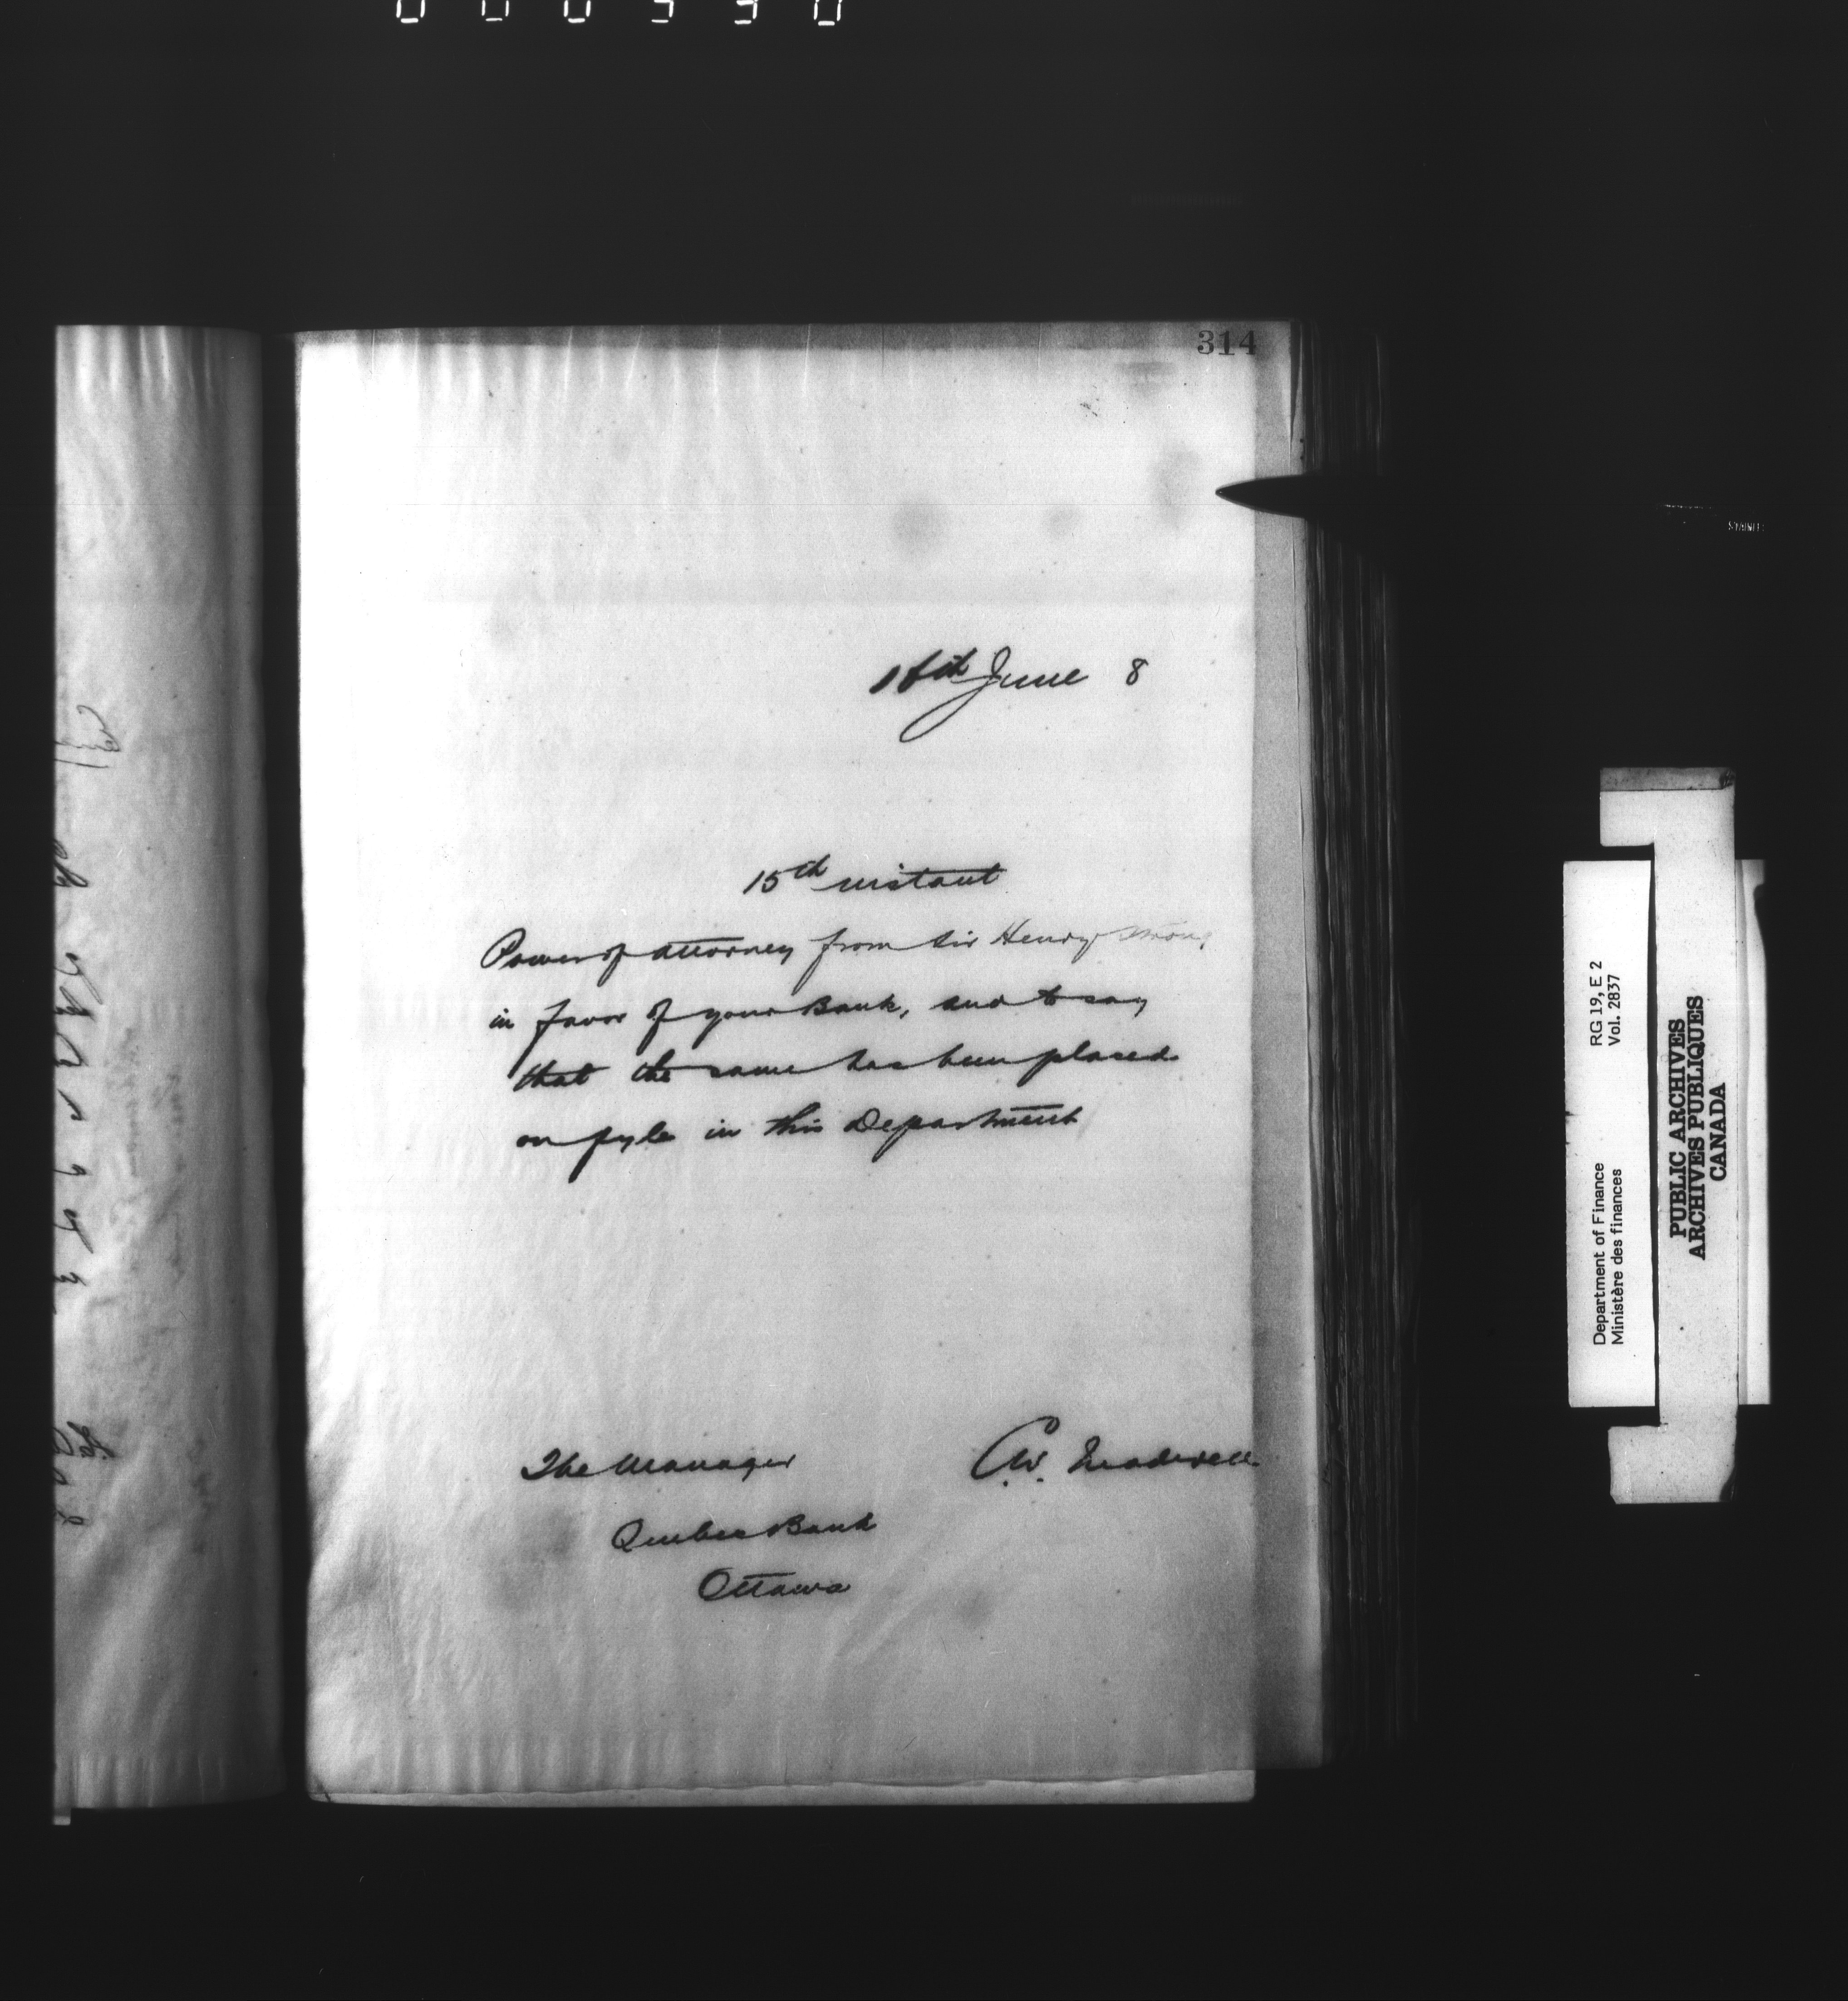 314
16th June 8
15th instant
Power of attorney from Sir Henry Strong
in favor of your Bank, and to say
that the same has been placed
on fyle in this Department
The Manager
Quebec Bank
Ottawa
C.W. Treadwell
RG 19, E 2
Vol. 2837
Department of Finance
Ministère des finances
PUBLIC ARCHIVES
ARCHIVES PUBLIQUES
CANADA